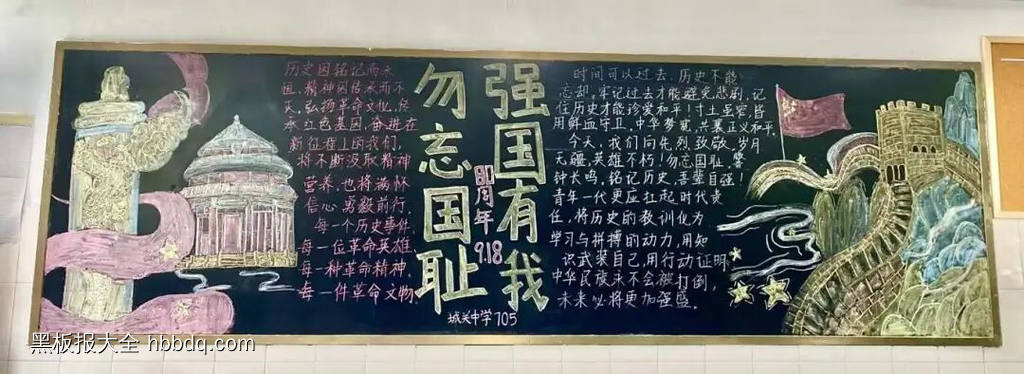 历史因铭记而永
恒,精神因传承而不
灭,弘扬革命文化,传
承红色基因,奋进在
新征程上的我们,
将不断汲取精神
营养,也将满怀
信心勇毅前行.
每一个历史事件,
每一位革命英雄,
每一种革命精神,
每一件革命文物,
勿忘国耻
80周年
9.18
强国有我
城关中学705
时间可以过去,历史不能
忘却,牢记过去才能避免悲剧,记
住历史才能珍爱和平!寸土至容,皆
用鲜血守卫,中华梦冕,共襄正义和平.
今天,我们向先烈致敬,岁月
无疆,英雄不朽!勿忘国耻,警
钟长鸣,铭记历史,吾辈自强!
青年一代更应扛起时代责
任,将历史的教训化为
学习与拼搏的动力,用知
识武装自己,用行动证明:
中华民族永不会被打倒,
未来必将更加强盛.
黑板报大全 hbbdq.com